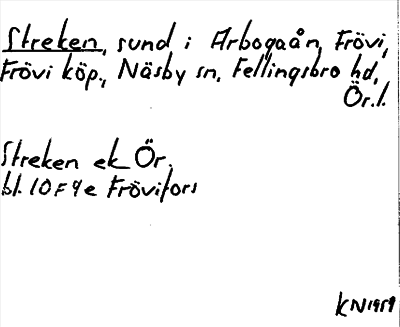 Streken, sund i Arbogaån, Frövi,
Frövi köp., Näsby sn, Fellingsbro hd,
Ör.l.
Streken ek Ör.
bl. 10F4e Frövifors
KN1959